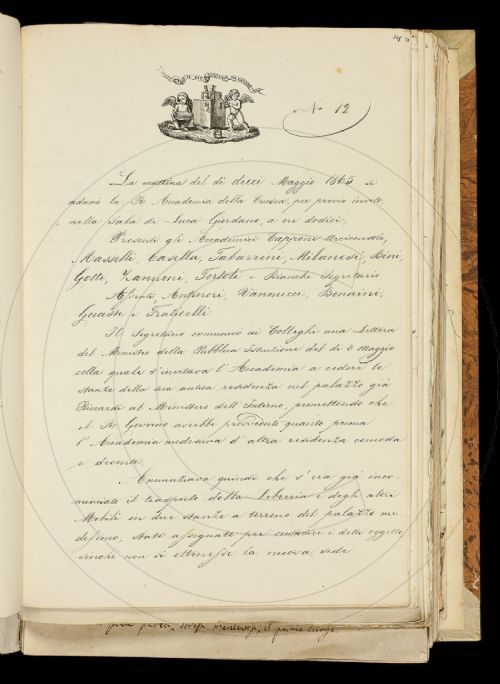 N. 12
La mattina del dì dieci Maggio 1865 si
adunò la R. Accademia della Crusca, per primo invito,
nella Sala di Luca Giordano, a ore dodici,
Presenti gli Accademici Capponi Arciconsolo,
Masselli, Casella, Tabarrini, Milanesi, Bini,
Gotti, Zannoni, Tortoli e Bianchi Segretario
Assenti, Antinori, Vannucci, Bonaini,
Guasti e Fraticelli
Il Segretario comunicò ai Colleghi una Lettera
del Ministro della Pubblica Istruzione del dì 2 Maggio
colla quale s'invitava l'Accademia a cedere le
stanze della sua antica residenza nel palazzo già
Riccardi al Ministero dell'Interno, promettendo che
il R. Governo avrebbe provveduto quanto prima
l'Accademia medesima d'altra residenza comoda
e decente.
Annunziava quindi che s'era già inco-
minciato il trasporto della Libreria e degli altri
Mobili in due stanze a terreno del palazzo me-
desimo, state assegnate per custodire i detti oggetti
finchè non si ottenesse la nuova sede.
il primo luogo